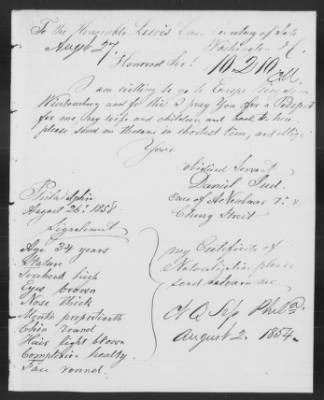 To the Honorable Lewis Cass Secretary of State
Washington D. C.
Aug 27.
Honored Sir! 10210
I am willing to go to Europe
Wurtemburg and for this I pray You for a Passport
for me my wife and children, and back to here,
please send me them in shortest time, and oblige
Yours
obedient Servant
Daniel
Care of 7. &
Cherry Street
Philadelphia
August 26. 1858
Signalement
Age 34 years
Stature
Forehead high
Eyes brown
Nose thick
Mouth proportionate
Chin round
Hair light brown
Complexion healthy
Face round.
my Certificate of
Naturalization please
send return me
Phil
August 2. 1854.